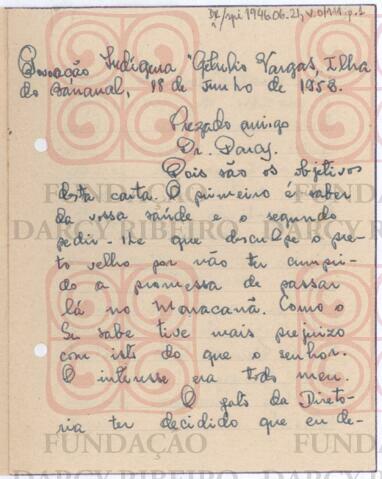 DR/spi 1946.06.21, v.6/144.p.1
Povoação Indígena "Getulio Vargas, Ilha
do Bananal, 18 de Junho de 1958.
Prezado amigo
Dr. Darcy.
Dois são os objetivos
desta carta. O primeiro é saber
da vossa saúde e o segundo
pedir-lhe que desculpe o pre-
to velho por não ter cumpri-
do a promessa de passar
lá no Maracanã. Como o
Sr sabe tive mais prejuizo
com isto do que o senhor.
O interesse era todo meu.
O gato da Direto-
ria ter decidido que eu de-
FUNDAÇÃO
DARCY RIBEIRO
FUNDAÇÃO
DARCY RIBEIRO
FUNDAÇÃO
DARCY RIBEIRO